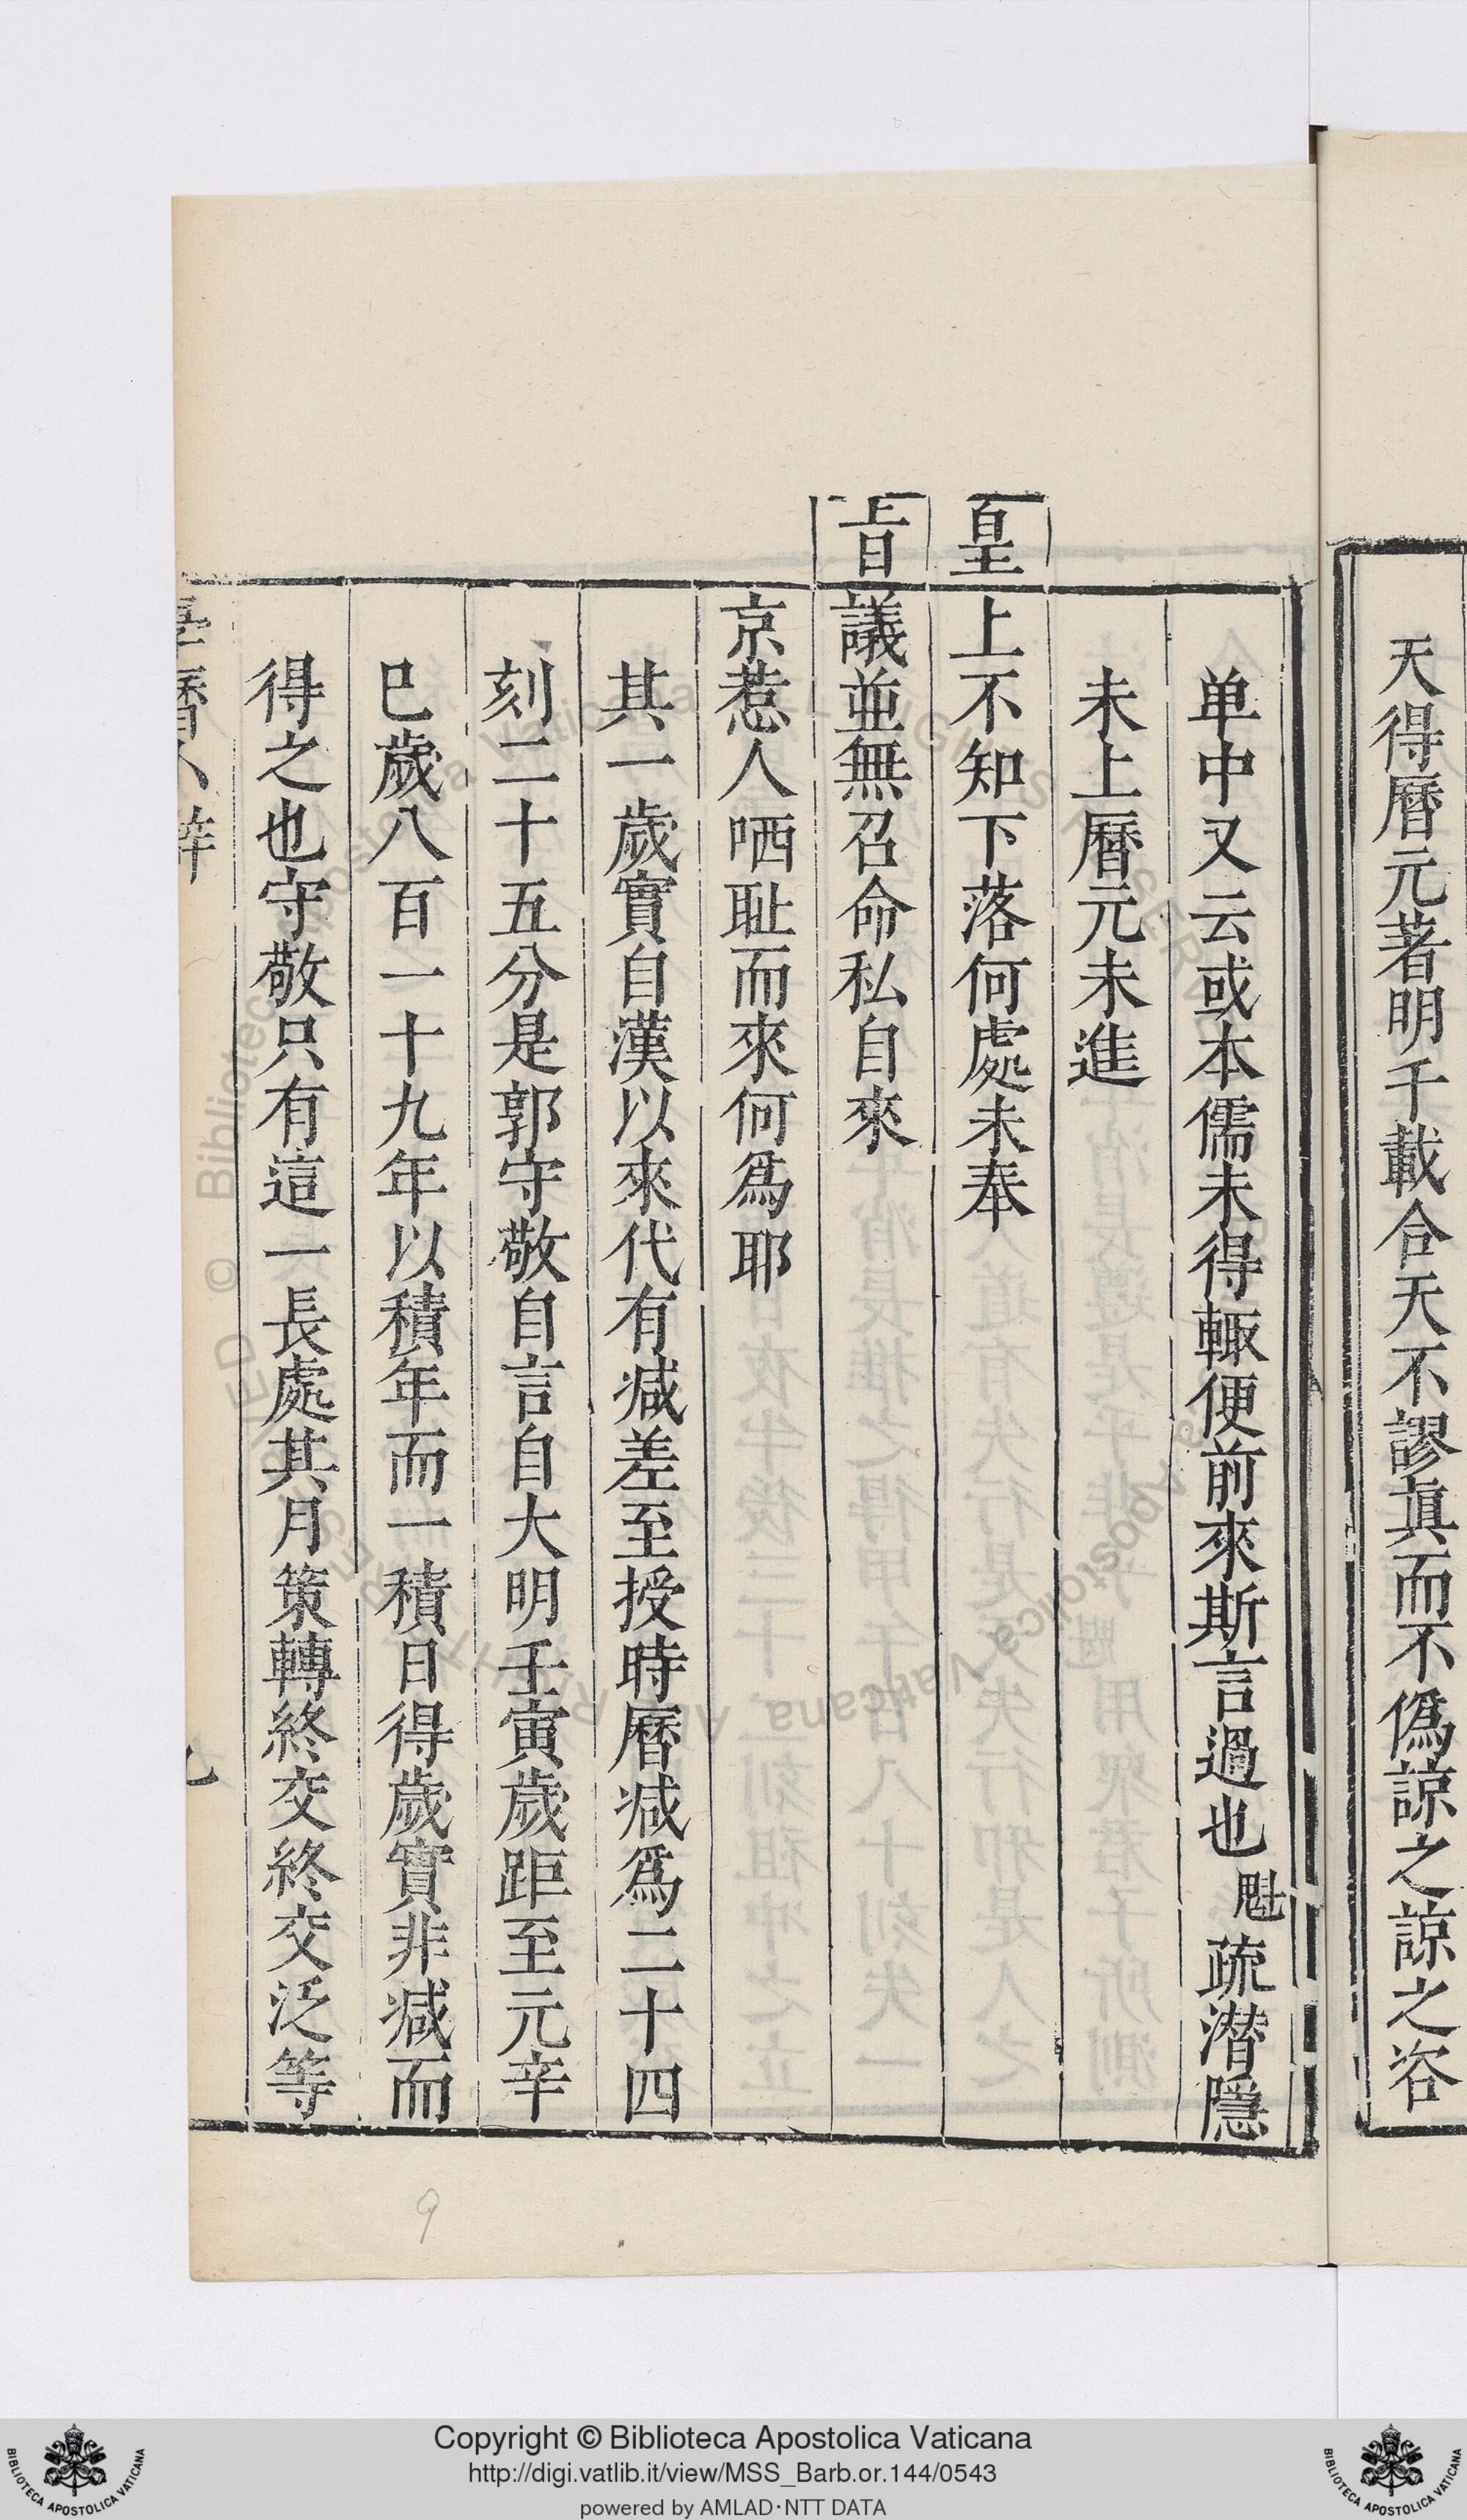 天得曆元著明千載合天不謬眞而不僞諒之諒之咨
单中又云或本儒未得輙便前來斯言過也魁疏潜隱
未上曆元未進
皇上不知下落何處未奉
旨議並無召命私自來
京惹人哂耻而來何爲耶
其一歲實自漢以來代有减差至授時曆减爲二十四
刻二十五分是郭守敬自言自大明壬寅歲距至元辛
巳歲八百一十九年以積年而一積日得歲實非减而
得之也守敬只有這一長處其月策轉終交終交泛等
Copyright © Biblioteca Apostolica Vaticana
http://digi.vatlib.it/view/MSS_Barb.or.144/0543
powered by AMLAD·NTT DATA
BIBLIOTECA APOSTOLICA VATICANA
BIBLIOTECA APOSTOLICA VATICANA